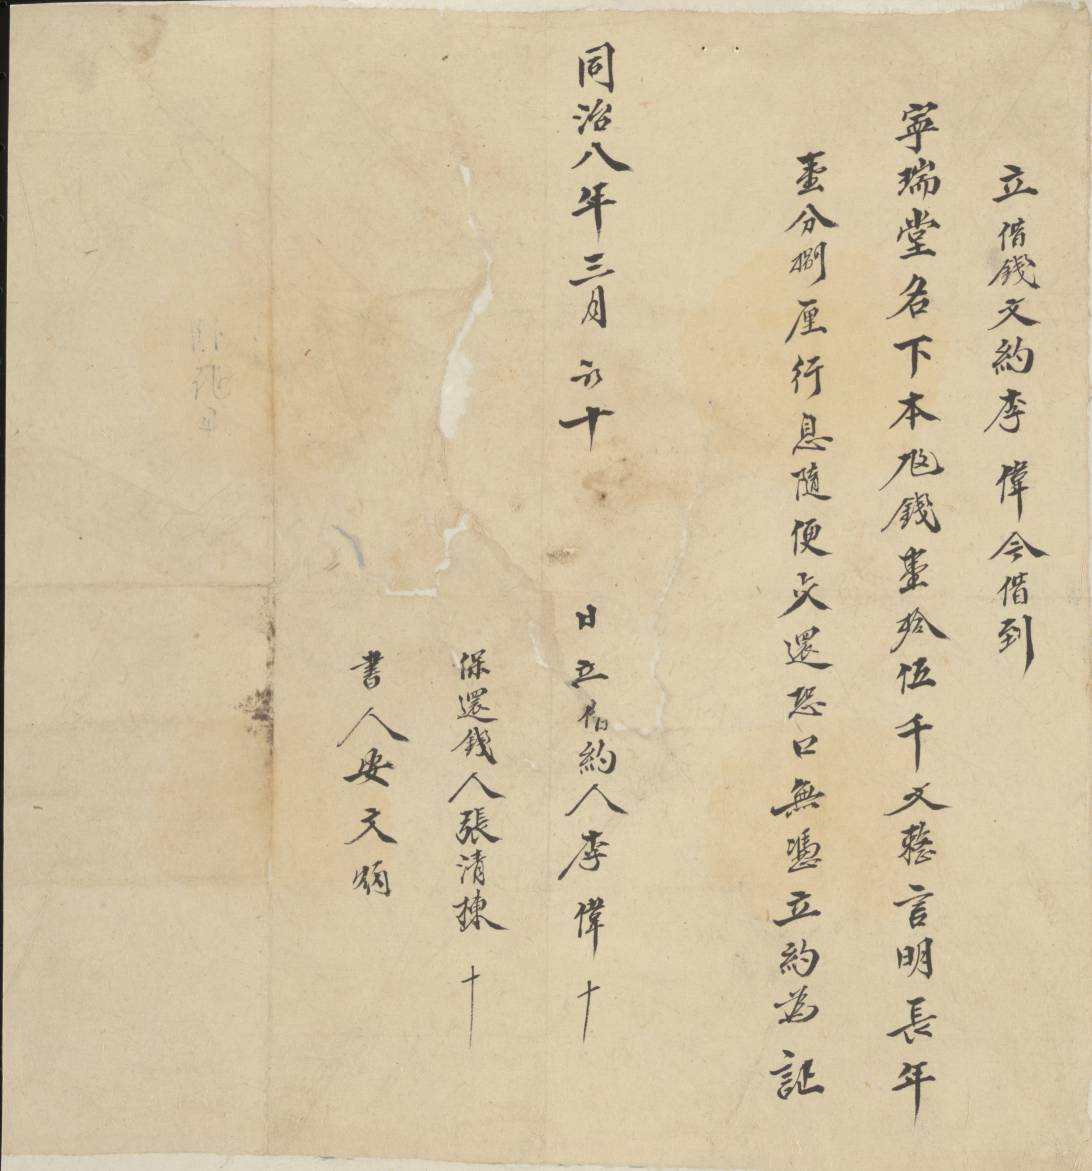 立借錢文約李偉今借到
寧瑞堂名下本 錢壹拾伍千文整言明長年
壹分捌厘行息隨便交還恐口無憑立約為証
同治八年三月初十日立借約人李偉十
保還錢人張清棟十
書人安文炳